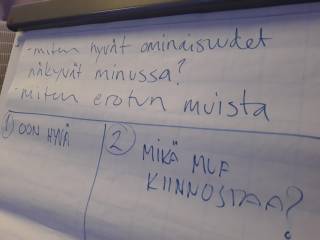 - miten hyvät ominaisuudet
näkyvät minussa?
- miten erotun muista
1 OON HYVÄ
2 MIKÄ MUA
KIINNOSTAA?